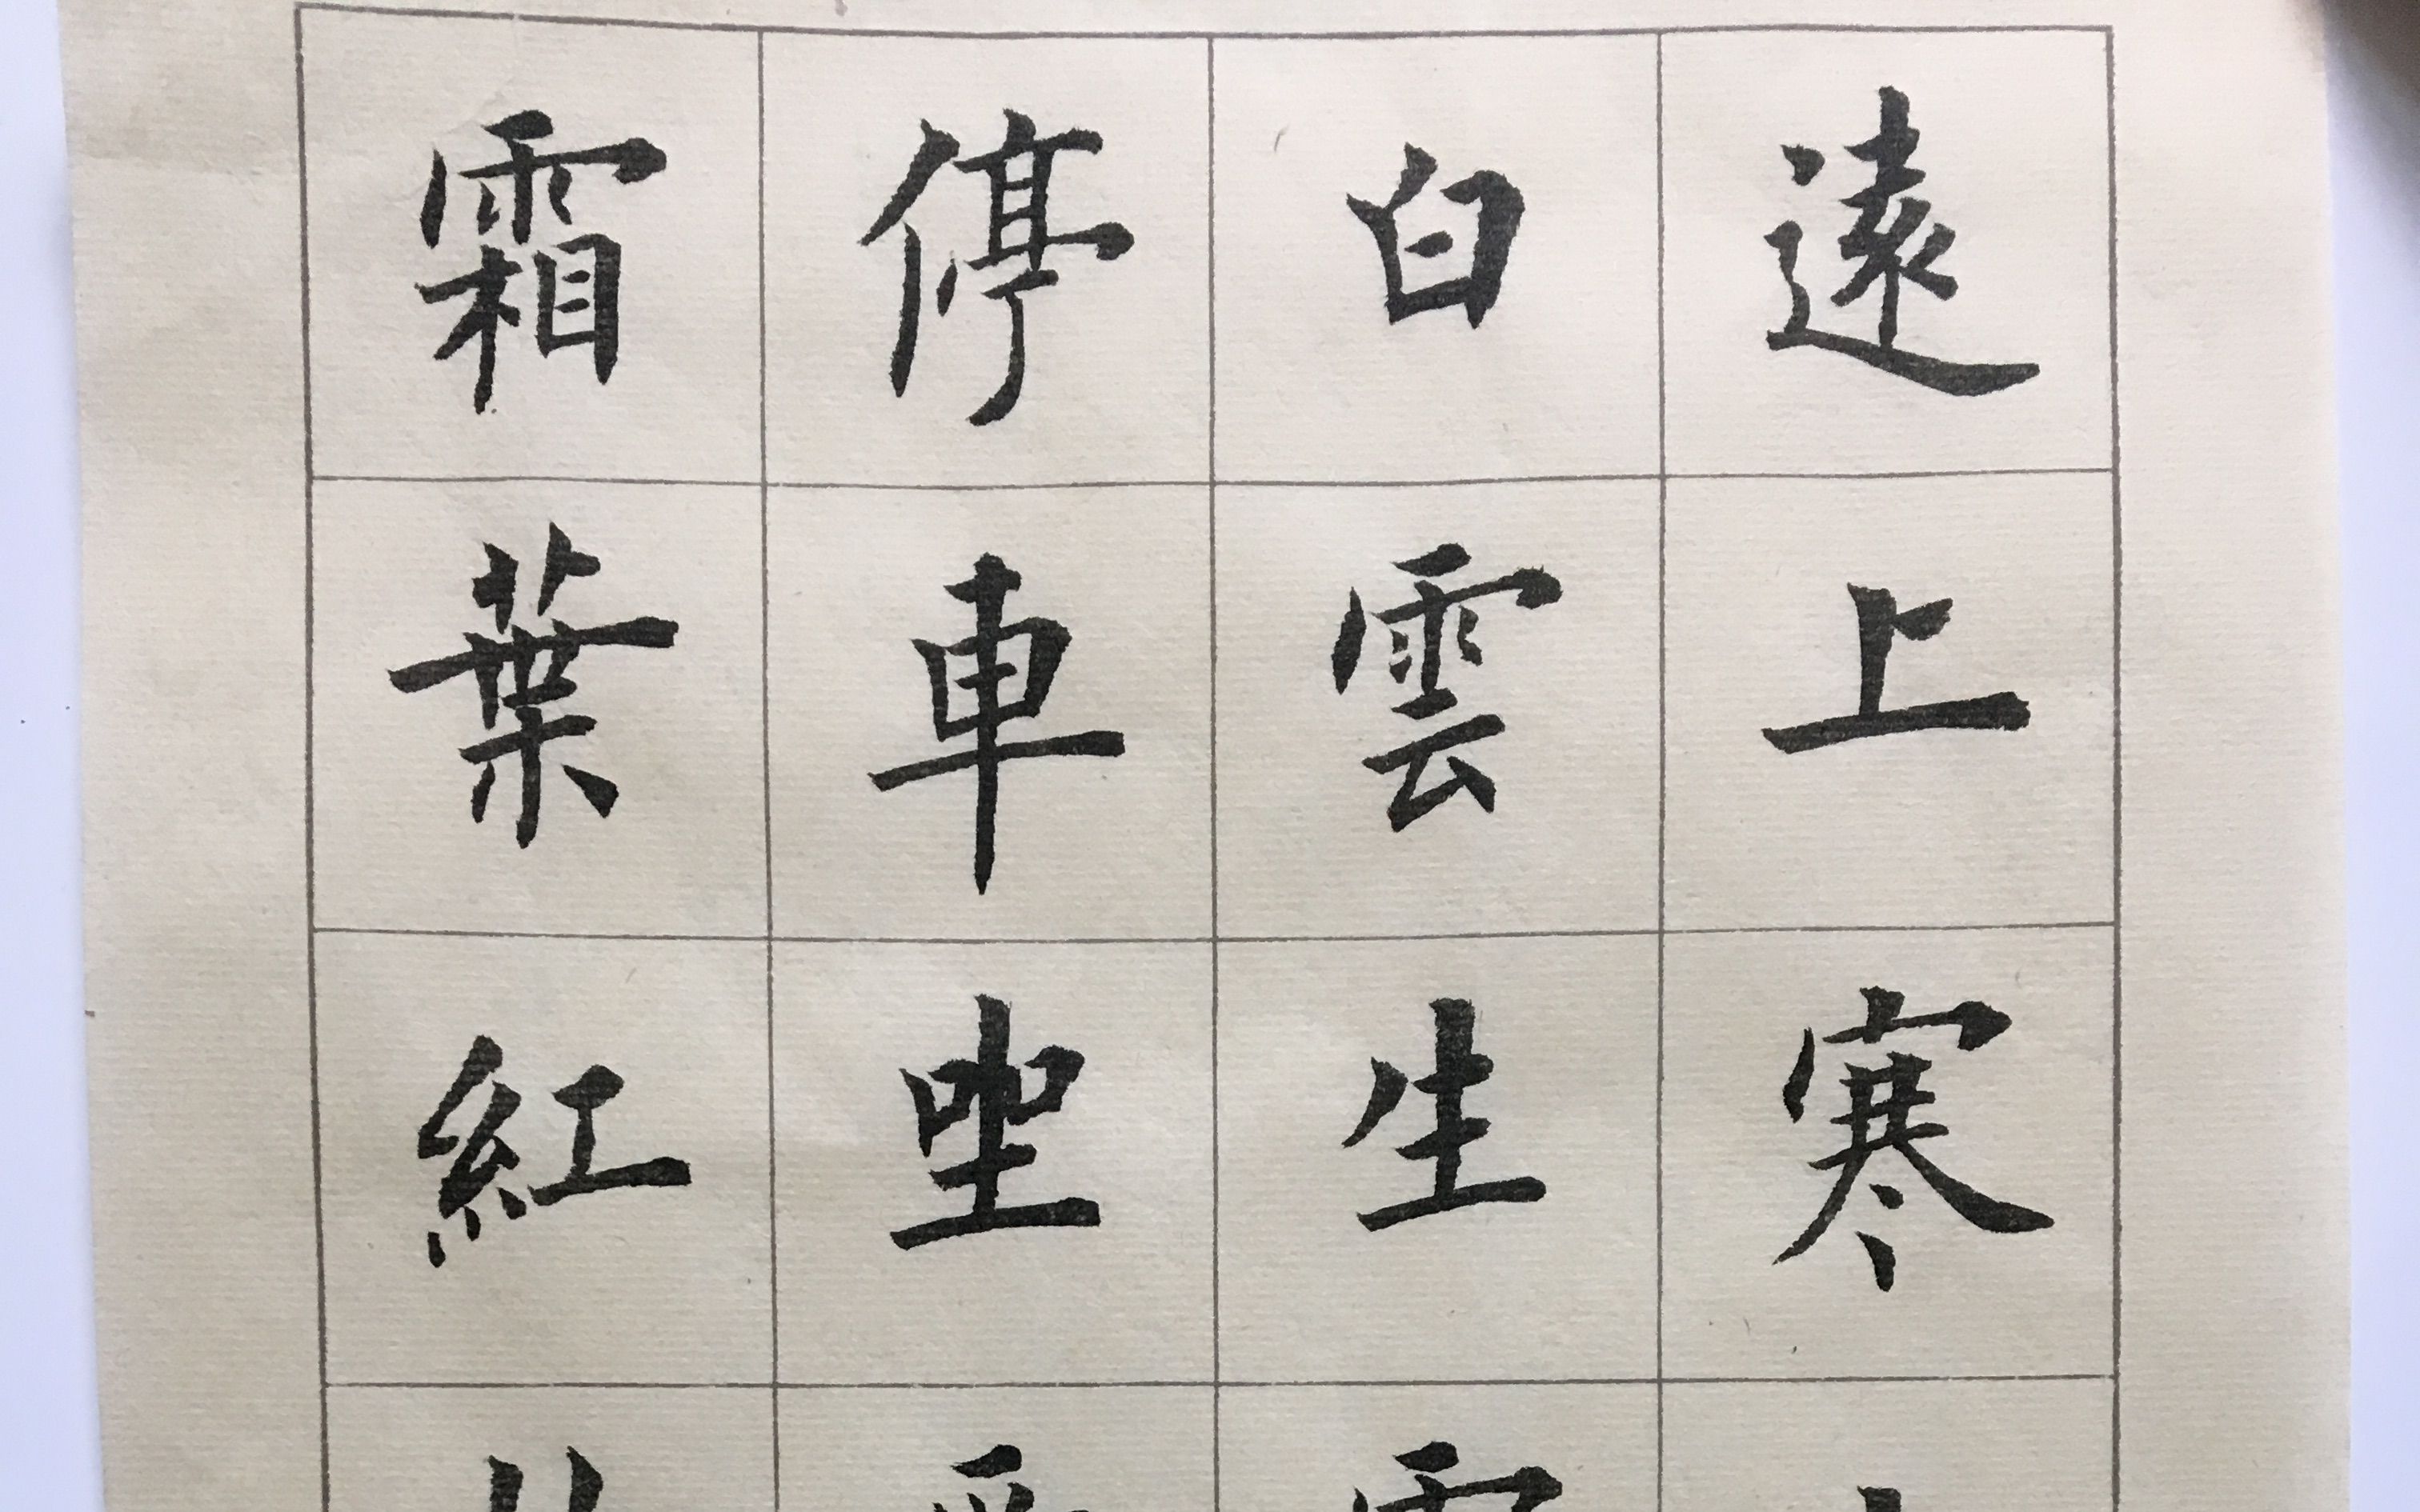 遠上寒
白雲生
停車坐
霜葉紅